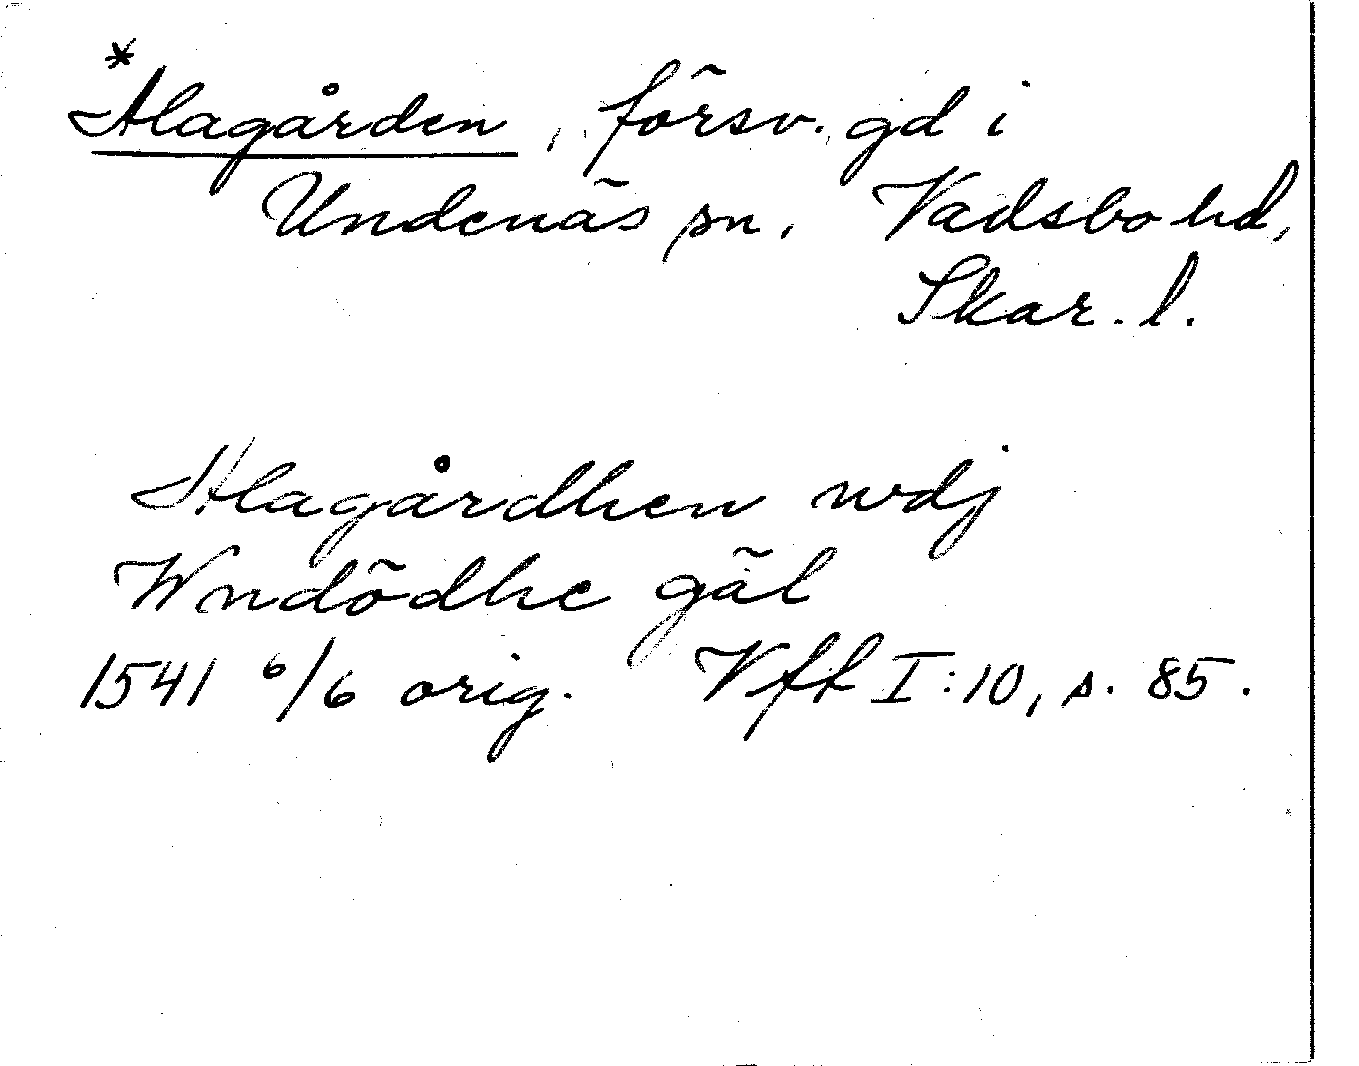 *Alagården, försv. gd i
Undenäs sn, Vadsbo hd,
Skar. l.
Alagårdhen wdj
Wndödhe gäl
1541 6/6 orig. Vft I:10, s. 85.